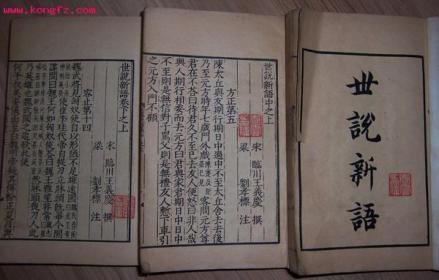 www.kongfz.com
世說新語
世說新語中之上
宋 臨川王義慶 撰
梁 劉孝標 注
方正第五
陳太丘與友期行期日中過中不至太丘舍去去後
乃至元方時年七歲門外戲 客問元方尊
君在不荅曰待君久不至已去友人便怒曰非人哉
與人期行相委而去元方曰君與家君期日中日中
不至則是無信對子罵父則是無禮友人慙下車引
之元方入門不顧
世說新語卷下之上
宋 臨川王義慶 撰
梁 劉孝標 注
容止第十四
魏武將見匈奴使自以形陋不足雄遠國
使崔季珪代帝自捉刀立牀頭旣畢令間
諜問曰魏王何如匈奴使荅曰魏王雅望非常
牀頭捉刀人此
乃英雄也魏武聞之追殺此使
何平叔美姿儀面至白魏明帝疑其傅粉正夏月與